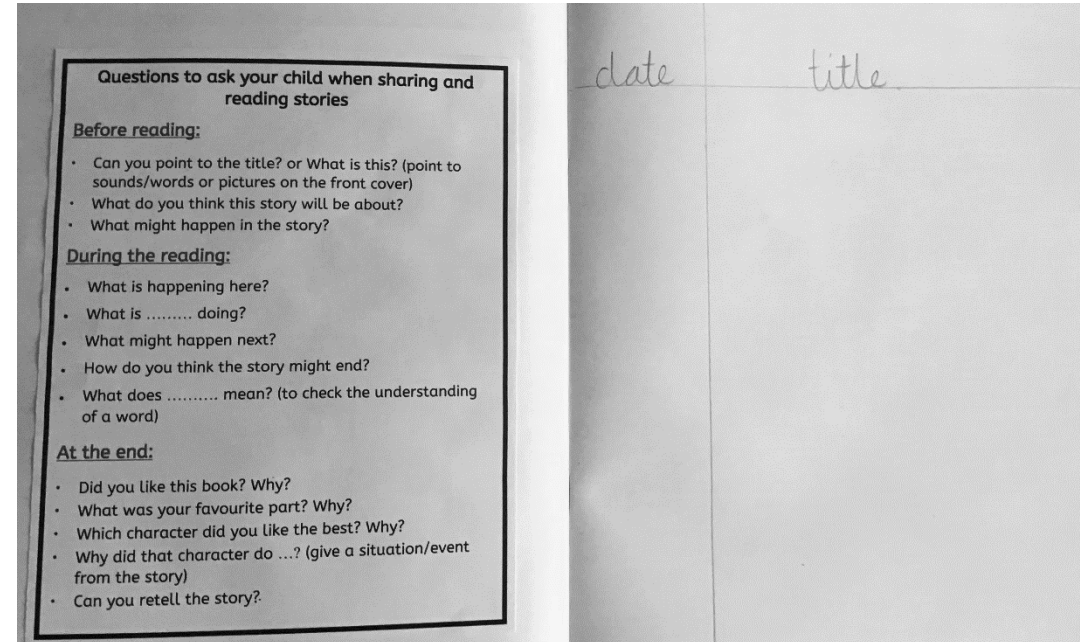 Questions to ask your child when sharing and
reading stories
Before reading:
• Can you point to the title? or What is this? (point to
sounds/words or pictures on the front cover)
• What do you think this story will be about?
• What might happen in the story?
During the reading:
• What is happening here?
• What is ......... doing?
• What might happen next?
• How do you think the story might end?
• What does .......... mean? (to check the understanding
of a word)
At the end:
• Did you like this book? Why?
• What was your favourite part? Why?
• Which character did you like the best? Why?
• Why did that character do ...? (give a situation/event
from the story)
• Can you retell the story?
date title